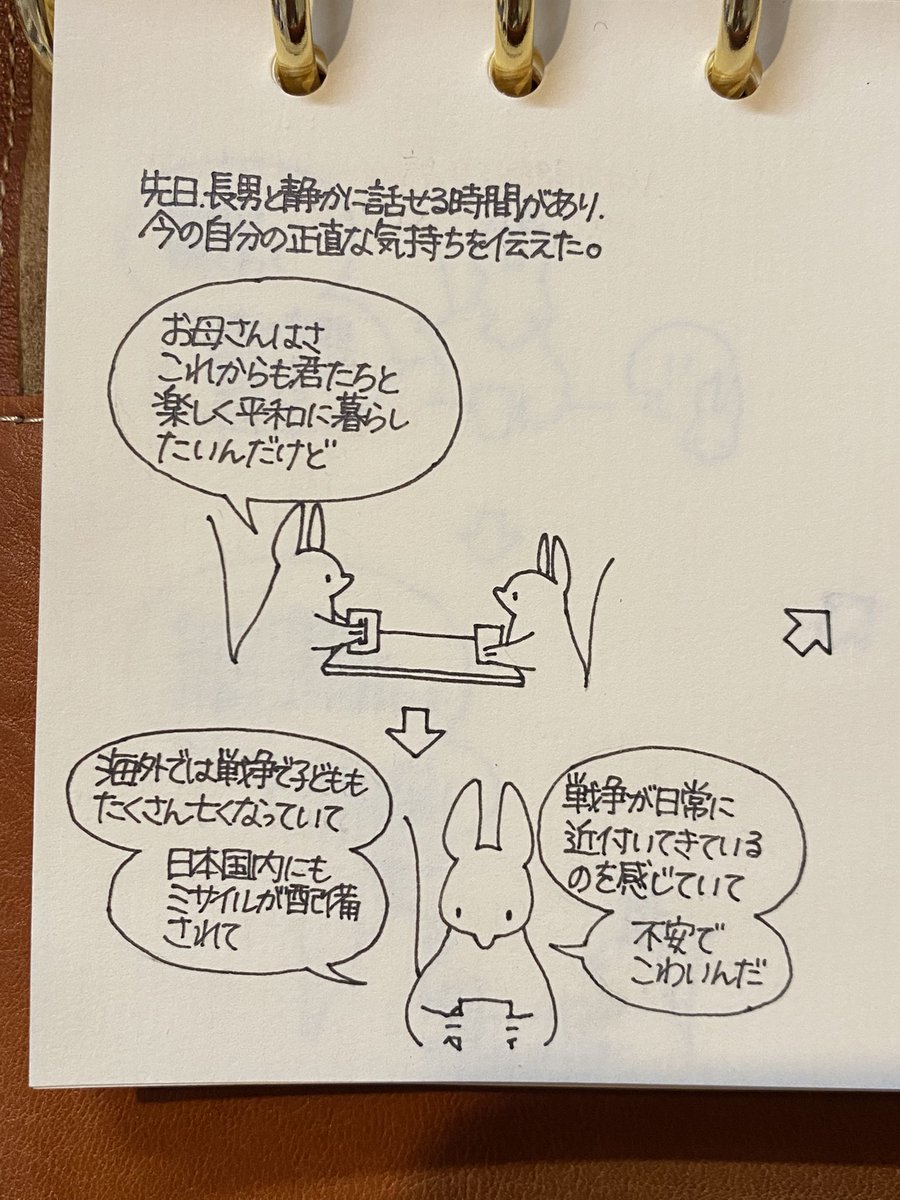 先日、長男と静かに話せる時間があり、
今の自分の正直な気持ちを伝えた。
お母さんはさ
これからも君たちと
楽しく平和に暮らし
たいんだけど
海外では戦争で子どもも
たくさん亡くなっていて
日本国内にも
ミサイルが配備
されて
戦争が日常に
近付いてきている
のを感じていて
不安で
こわいんだ